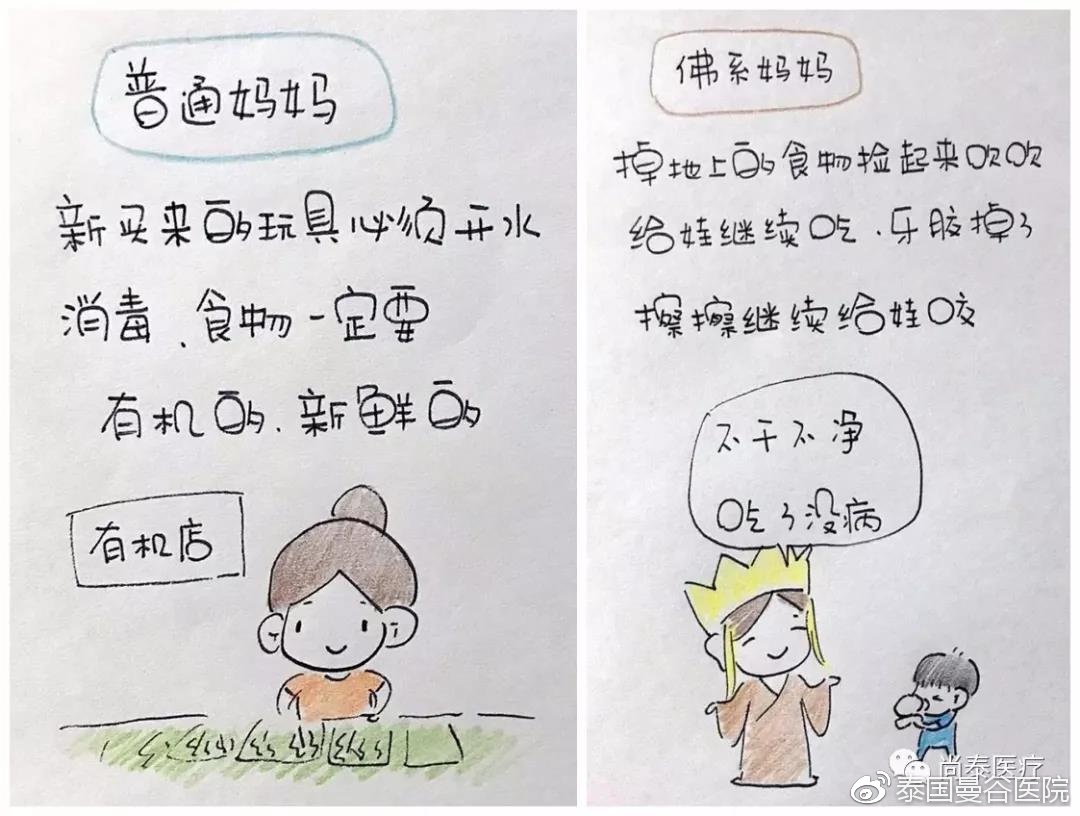 普通妈妈
新买来的玩具必须开水
消毒、食物一定要
有机的、新鲜的
有机店
佛系妈妈
掉地上的食物捡起来吹吹
给娃继续吃、牙胶掉了
擦擦继续给娃咬
不干不净
吃了没病
尚泰医疗
泰国曼谷医院